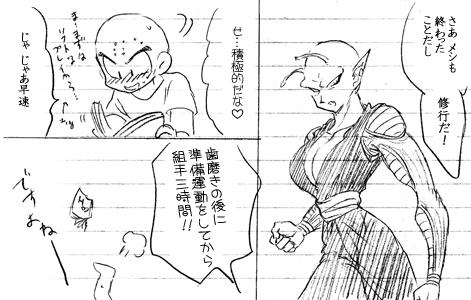 さあ メシも
終わった
ことだし
修行だ!
せ…積極的だな♡
ま…まずは
ソフトに
じゃ じゃあ早速
歯磨きの後に
準備運動をしてから
組手三時間!!
ですよねー